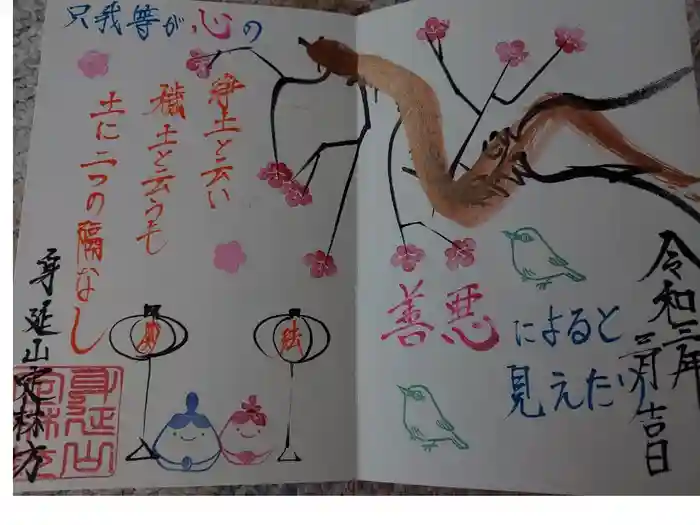 浄土と云い
穢土と云うも
土に二つの隔なし
只我等が心の
善悪によると
見えたり
令和三年
三月吉日
身延山定林坊
妙
法